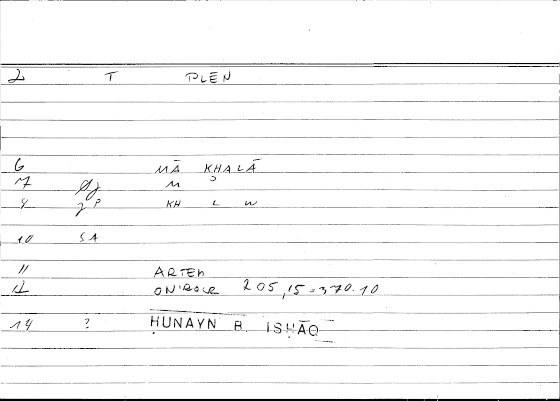 2 T PLĒN
6 MĀ KHALĀ
7 M ʾ
4 P KH L W
10 SA
11 ARTEM
12 ON'ROCR 205,15=370.10
14 ? ḤUNAYN B. ISḤĀQ